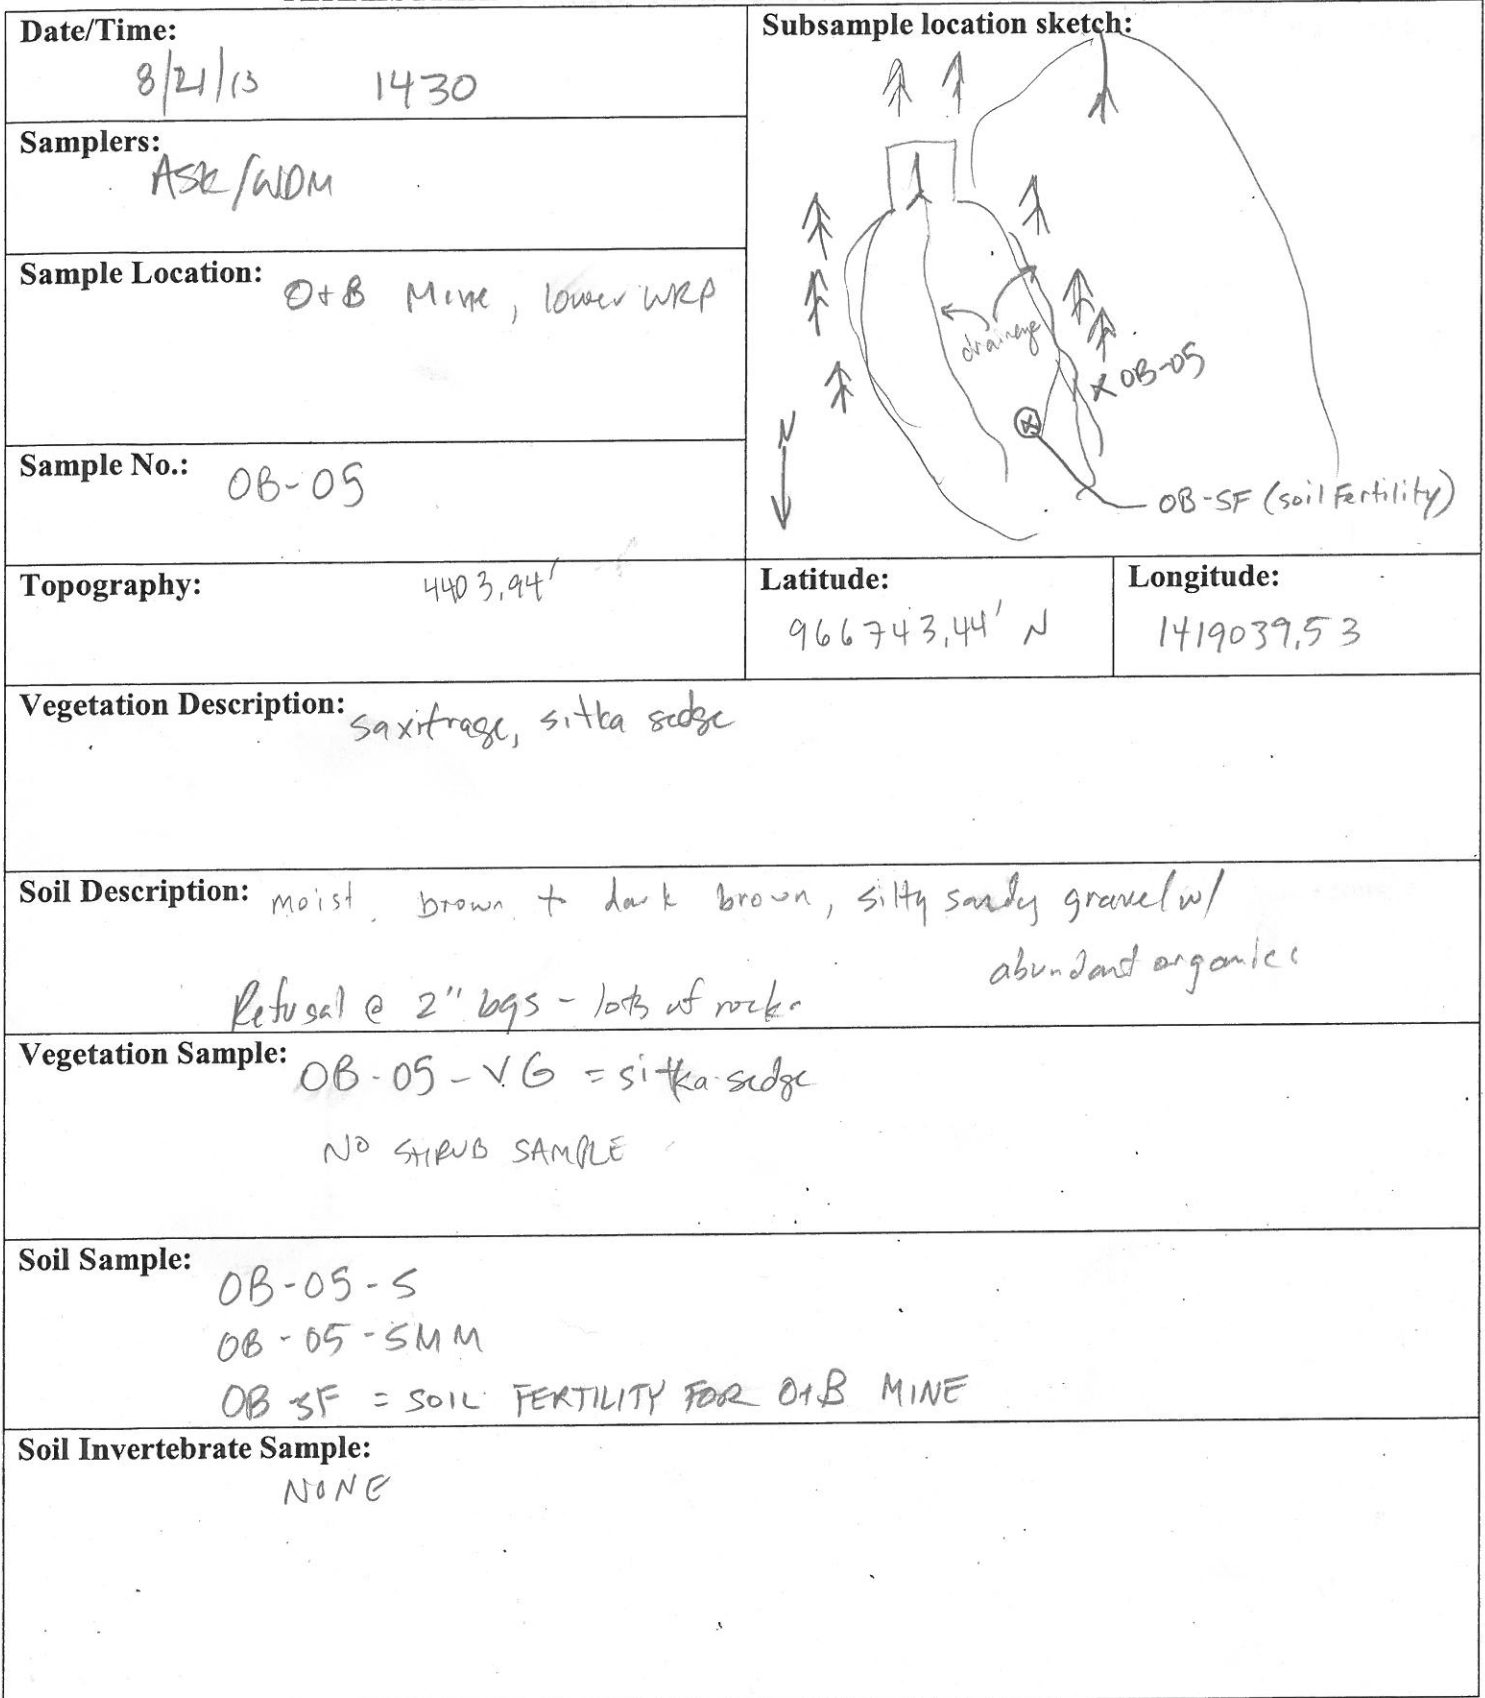 Date/Time:
8/21/13 1430
Samplers:
ASK/WDM
Sample Location: O+B Mine, lower WRP
Sample No.: OB-05
Subsample location sketch:
drainage
X OB-05
N
OB-SF (soil fertility)
Topography: 4403.94'
Latitude:
966743.44' N
Longitude:
1419039.53
Vegetation Description: saxifrage, sitka sedge
Soil Description: moist, brown to dark brown, silty sandy gravel w/
abundant organics
Refusal @ 2" bgs - lots of rock
Vegetation Sample: OB-05-VG = sitka sedge
NO SHRUB SAMPLE
Soil Sample:
OB-05-S
OB-05-SMM
OB-SF = SOIL FERTILITY FOR O+B MINE
Soil Invertebrate Sample:
NONE